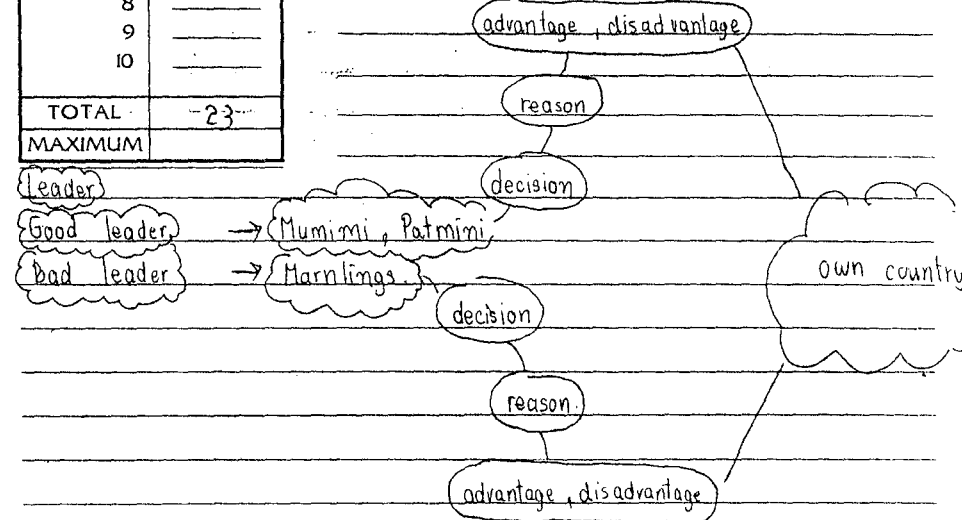 8
9
10
TOTAL 23
MAXIMUM
advantage , disadvantage
reason
decision
Leader
Good leader → Mumimi , Patmini
Bad leader → Marnlings.
own country
decision
reason.
advantage , disadvantage